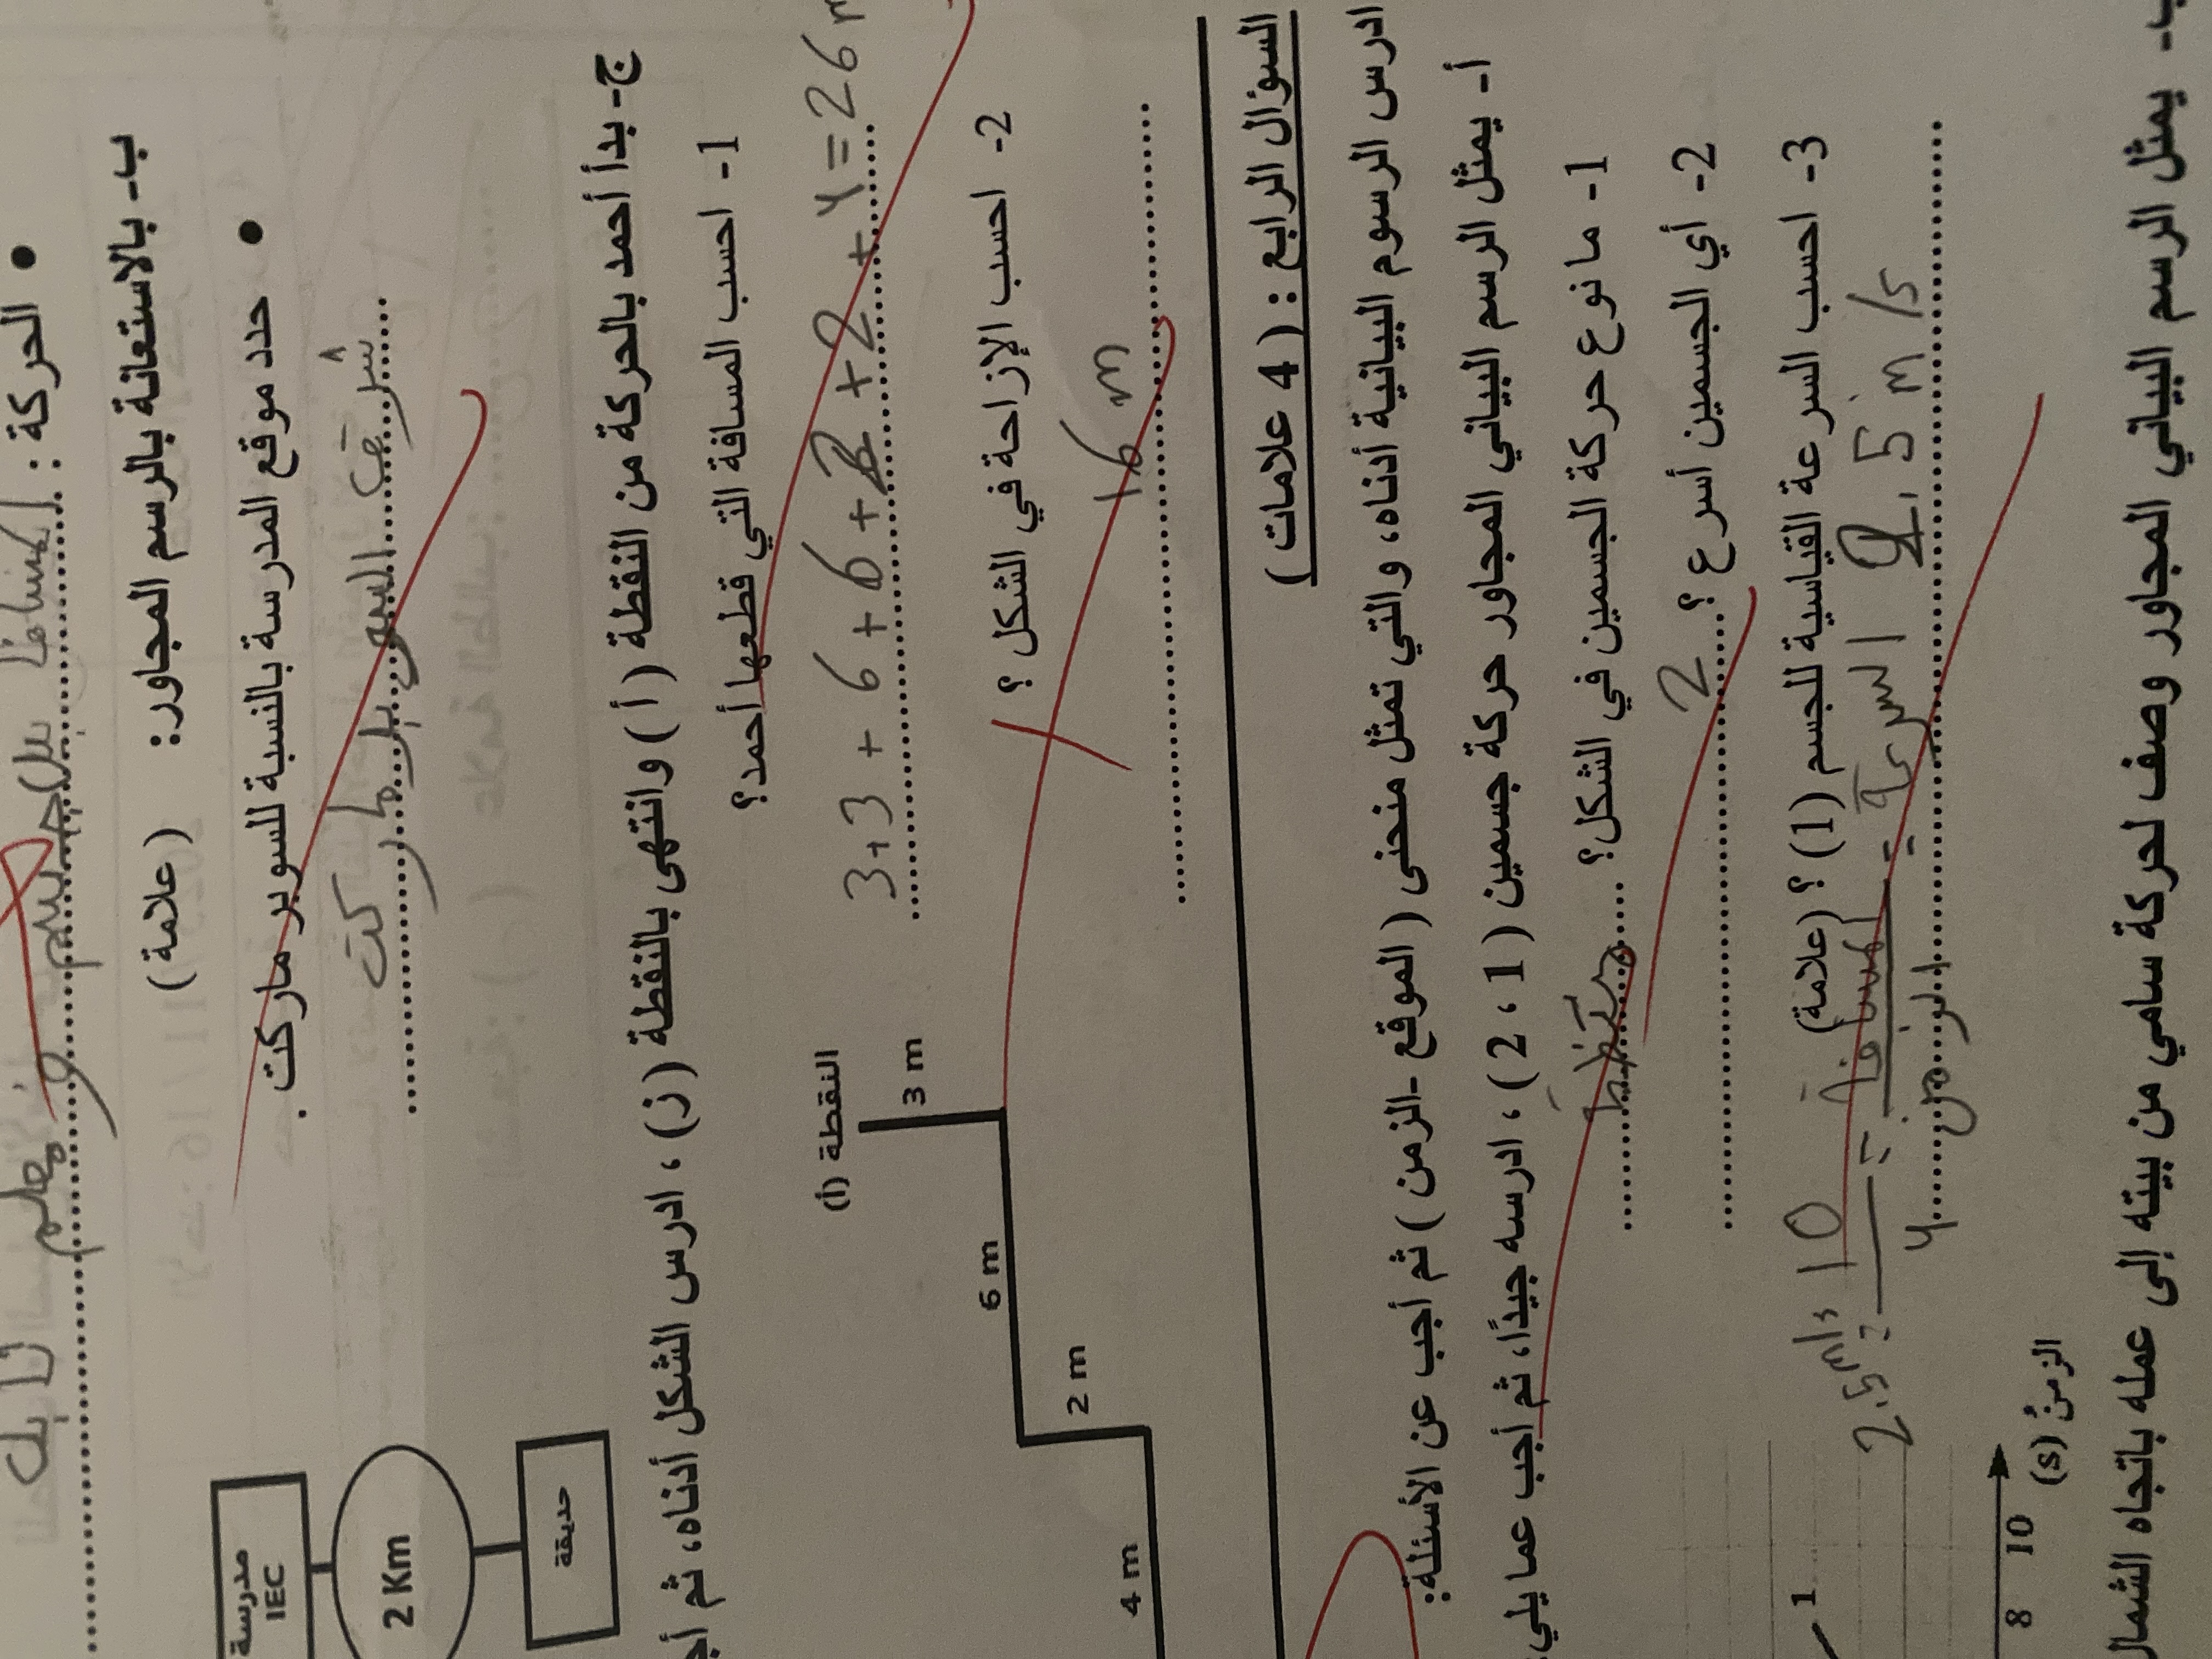 • الحركة :
ب- بالاستعانة بالرسم المجاور: (علامة )
• حدد موقع المدرسة بالنسبة للسوبر ماركت .
شرق السوبر ماركت
مدرسة
IEC
2 Km
حديقة
ج- بدأ أحمد بالحركة من النقطة ( أ ) وانتهى بالنقطة ( ز) ، ادرس الشكل أدناه، ثم
1- احسب المسافة التي قطعها أحمد؟
3+3 + 6 + 6 + 2 + 2 + 4 = 26
2- احسب الإزاحة في الشكل ؟
16 m
النقطة (أ)
3 m
6 m
2 m
4 m
السؤال الرابع : ( 4 علامات )
ادرس الرسوم البيانية أدناه، والتي تمثل منحنى ( الموقع -الزمن ) ثم أجب عن الأسئلة:
أ- يمثل الرسم البياني المجاور حركة جسمين ( 1 ، 2 ) ، ادرسه جيدًا، ثم أجب عما يلي:
1- ما نوع حركة الجسمين في الشكل؟
2- أي الجسمين أسرع ؟ 2
3- احسب السرعة القياسية للجسم (1) ؟ (علامة)
السرعة = المسافة / الزمن = 10 / 4 = 2.5 m/s
2.5 m/s
1
8 10
الزمن (s)
ب- يمثل الرسم البياني المجاور وصف لحركة سامي من بيته إلى عمله باتجاه الشمال